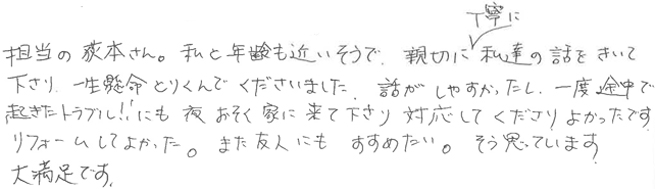 丁寧に
担当の荻本さん。私と年齢も近いそうで、親切に私達の話をきいて
下さり、一生懸命とりくんでくださいました。話がしやすかったし、一度途中で
起きたトラブル!!にも夜おそく家に来て下さり対応してくださりよかったです
リフォームしてよかった。また友人にもすすめたい。そう思っています
大満足です。